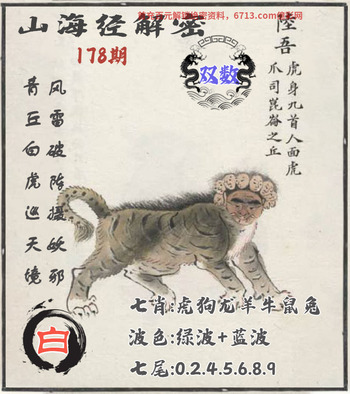 6713.com
山海经解密
178期
双数
陸吾
虎身九首人面虎
爪司崑崙之丘
风雷破阵摄妖邪
青丘白虎巡天境
白
七肖:虎狗龙羊牛鼠兔
波色:绿波+蓝波
七尾:0.2.4.5.6.8.9